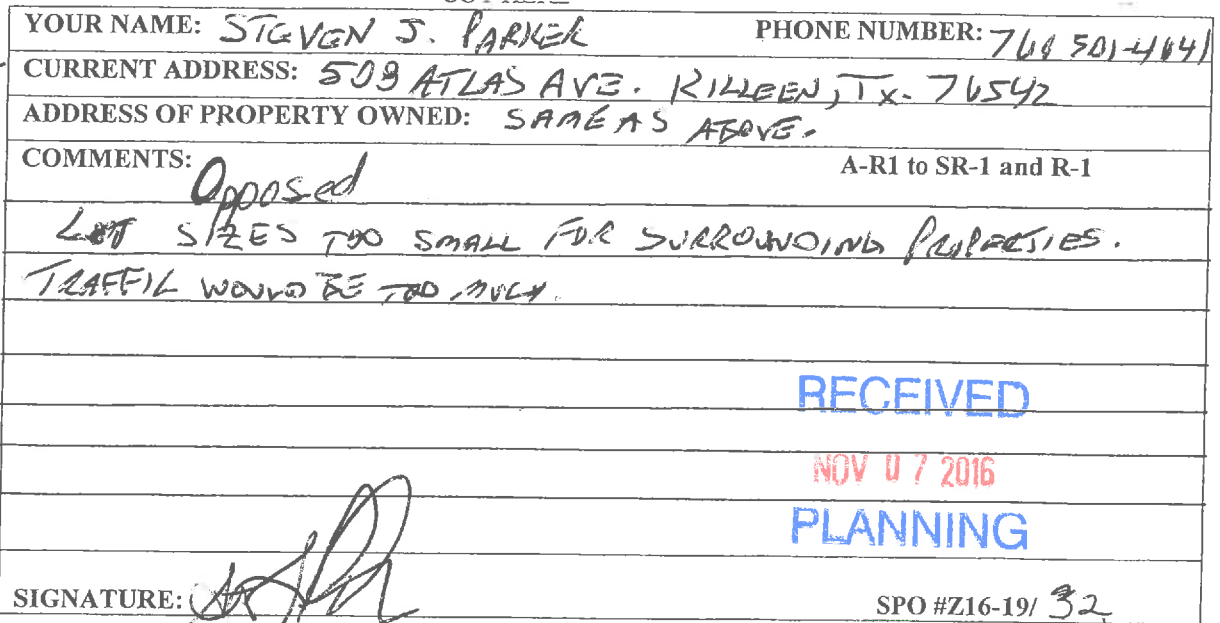 YOUR NAME: STEVEN J. PARKER PHONE NUMBER: 760 501-4641
CURRENT ADDRESS: 509 ATLAS AVE. KILLEEN, TX. 76542
ADDRESS OF PROPERTY OWNED: SAME AS ABOVE.
COMMENTS: A-R1 to SR-1 and R-1
Opposed
LOT SIZES TOO SMALL FOR SURROUNDING PROPERTIES.
TRAFFIC WOULD BE TOO MUCH.
RECEIVED
NOV 07 2016
PLANNING
SIGNATURE: SPO #Z16-19/ 32